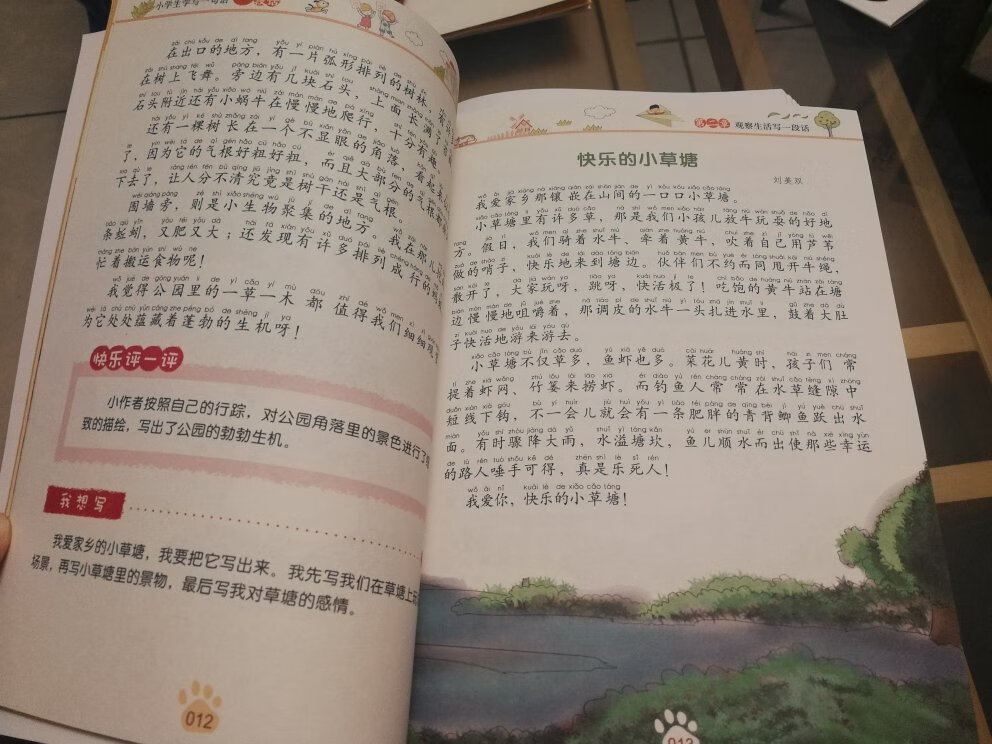 小学生学写一句话
一段话
在出口的地方，有一片弧形排列的树林，
在树上飞舞。旁边有几块石头，上面长满了
石头附近还有小蜗牛在慢慢地爬行，十分有趣
还有一棵树长在一个不显眼的角落，看起来
了，因为它的气根好粗好粗，而且大部分的气根都
下去了，让人分不清究竟是树干还是气根。
围墙旁，则是小生物聚集的地方。我在那儿
条蚯蚓，又肥又大；还发现有许多排列成行的
忙着搬运食物呢！
我觉得公园里的一草一木 都 值得我们细细
为它处处蕴藏着蓬勃的生机呀！
快乐评一评
小作者按照自己的行踪，对公园角落里的景色进行了
致的描绘，写出了公园的勃勃生机。
我想写
我爱家乡的小草塘，我要把它写出来。我先写我们在草塘上
场景，再写小草塘里的景物，最后写我对草塘的感情。
012
第二章 观察生活写一段话
快乐的小草塘
刘美双
我爱家乡那镶嵌在山间的一口口小草塘。
小草塘里有许多草，那是我们小孩儿放牛玩耍的好地
方。假日，我们骑着水牛、牵着黄牛，吹着自己用芦苇
做的哨子，快乐地来到塘边。伙伴们不约而同甩开牛绳，
散开了，大家玩呀，跳呀，快活极了！吃饱的黄牛站在塘
边慢慢地咀嚼着，那调皮的水牛一头扎进水里，鼓着大肚
子快活地游来游去。
小草塘不仅草多，鱼虾也多。菜花儿黄时，孩子们 常
提着虾网、竹篓来捞虾。而钓鱼人常 常在水草缝隙中
短线下钩，不一会儿就会有一条肥胖的青背鲫鱼跃出水
面。有时骤降大雨，水溢塘坎，鱼儿顺水而出使那些幸运
的路人唾手可得，真是乐死人！
我爱你，快乐的小草塘！
013